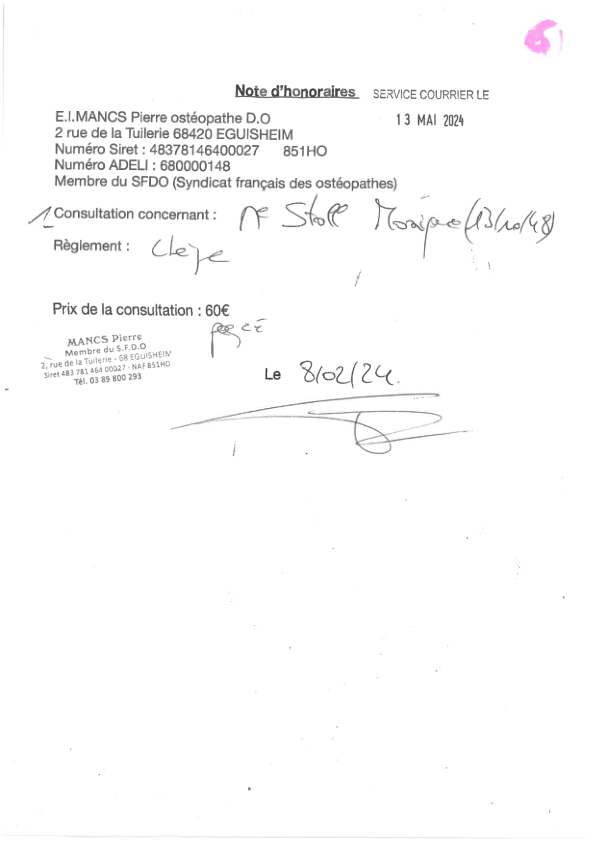 Note d'honoraires SERVICE COURRIER LE
13 MAI 2024
E.I.MANCS Pierre ostéopathe D.O
2 rue de la Tuilerie 68420 EGUISHEIM
Numéro Siret : 48378146400027 851HO
Numéro ADELI : 680000148
Membre du SFDO (Syndicat français des ostéopathes)
1 Consultation concernant : Stoll (13/10/48)
Règlement :
Prix de la consultation : 60€
payé
MANCS Pierre
Membre du S.F.D.O
2, rue de la Tuilerie - 68 EGUISHEIM
Siret 483 781 464 00027 - NAF 851HO
Tél. 03 89 800 293
Le 8/02/24.